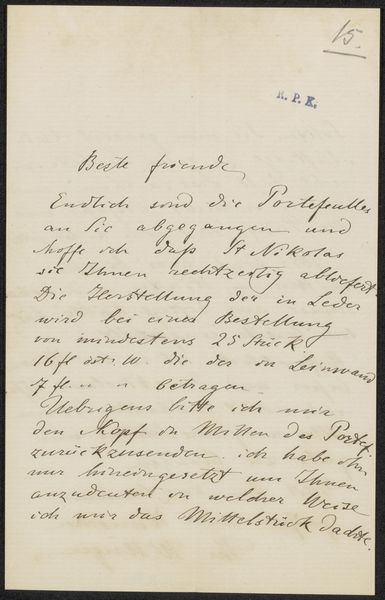 15.
R. P. K.
Beste friende,
Endlich sind die Portefeulles
an Sie abgegangen und
hoffe ich daß St Nikolas
sie Ihnen rechtzeitig abliefert.
Die Herstellung der in Leder
wird bei einer Bestellung
von mindestens 25 Stück
16 fl östr. W. die der in Leinwand
7 fl. " " betragen
Uebrigens bitte ich mir
den Kopf in Mitten des Portef.
zurückzusenden. ich habe ihn
nur hineingesetzt um Ihnen
anzudeuten in welcher Weise
ich mir das Mittelstück dachte.